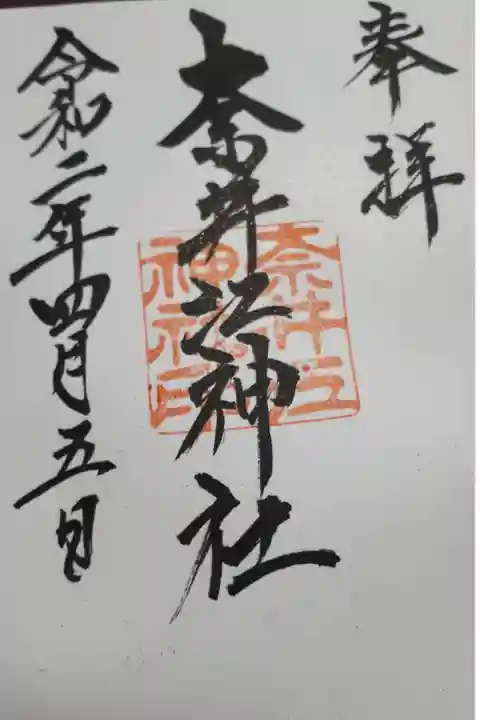 奉拝
奈井江神社
奈井江
神社印
令和二年四月五日